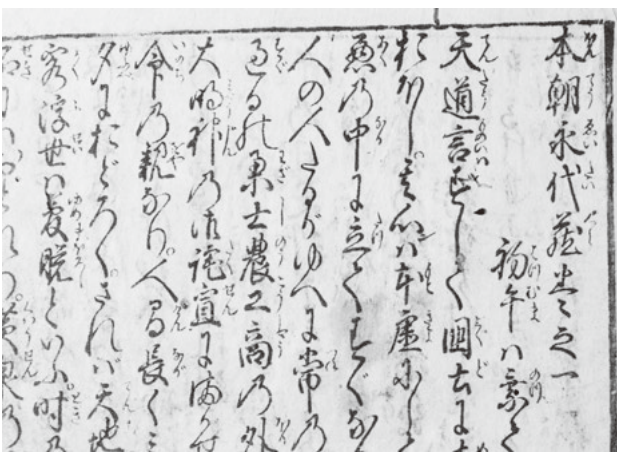 本朝永代蔵巻之一
初午ハ乗て
天道言ずして國土に
おほし其心ハ本虚にし
悪の中に立てすぐな
人の人たるがゆへに常の
過るの業士農工商の外
大明神の御詫宣にまかせ
命の親なり。人間長くミ
夕におどろく。されハ天地
客浮世ハ夢幻といふ。時の